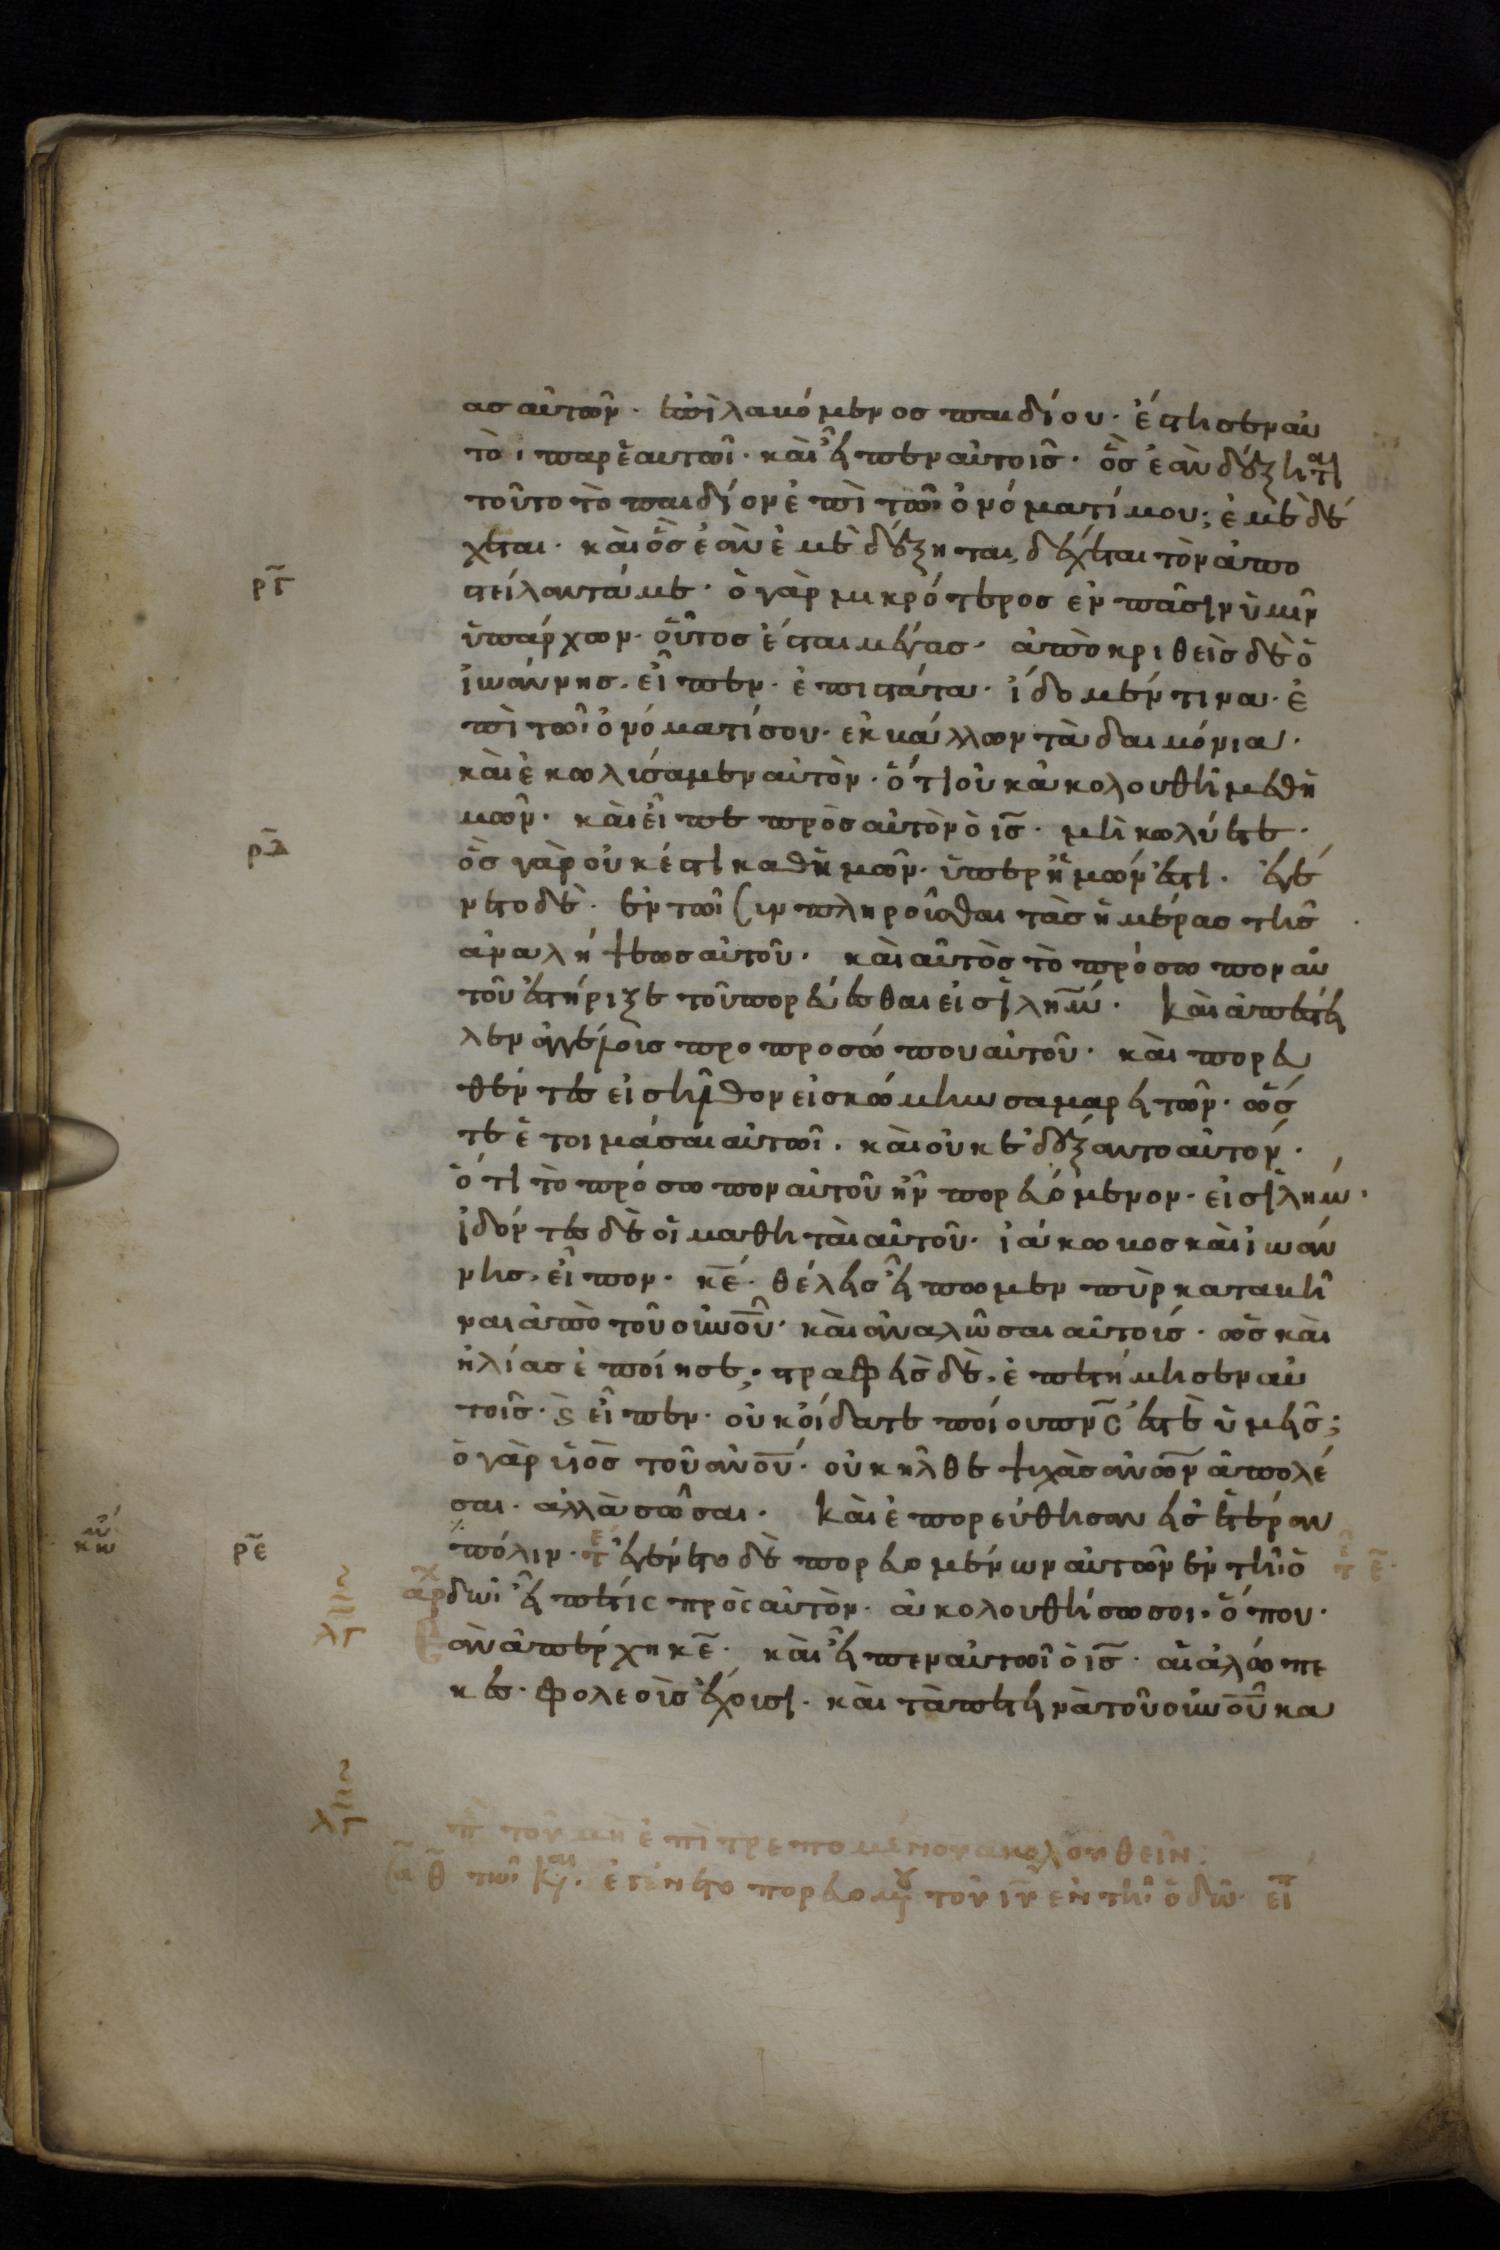 ασ αὐτῶν· ἐπιλαβόμενοσ παιδίου· ἔστησεν αὐ
τὸ παρ ἑαυτῶι· καὶ εἶπεν αὐτοῖσ· ὃσ ἐὰν δέξηται
τοῦτο τὸ παιδίον ἐπὶ τῶι ὀνόματί μου; ἐμὲ δέ
χεται· καὶ ὃσ ἐὰν ἐμὲ δέξηται, δέχεται τὸν ἀπο
ρ̅γ̅
στείλαντά με· ὁ γὰρ μικρότεροσ ἐν πᾶσιν ὑμῖν
ὑπάρχων· οὗτοσ ἔσται μέγασ· ἀποκριθεὶσ δὲ ὁ
ἰωάννησ· εἶπεν· ἐπιστάτα· ἴδομέν τινα· ἐ
πὶ τῶι ὀνόματί σου· ἐκβάλλων τὰ δαιμόνια·
καὶ ἐκωλύσαμεν αὐτὸν· ὅτι οὐκ ἀκολουθεῖ μεθ ἡ
μῶν· καὶ εἶπε πρὸσ αὐτὸν ὁ ι̅σ̅· μὴ κωλύετε·
ρ̅δ̅
ὃσ γὰρ οὐκ ἔστι καθ ἡμῶν· ὑπερ ἡμῶν ἐστι· ἐγέ
νετο δὲ· ἐν τῶι συμπληροῦσθαι τὰσ ἡμέρασ τῆσ
ἀναλήψεωσ αὐτοῦ· καὶ αὐτὸσ τὸ πρόσωπον αὐ
τοῦ ἐστήριξε τοῦ πορεύεσθαι εἰσ ἱλη̅μ̅· καὶ ἀπέστει
λεν ἀγγέλουσ προ προσώπου αὐτοῦ· καὶ πορευ
θέντεσ εἰσῆλθον εἰσ κώμην σαμαρειτῶν· ὥσ
τε ἑτοιμάσαι αὐτῶι· καὶ οὐκ ἐδέξαντο αὐτον·
ὅτι τὸ πρόσωπον αὐτοῦ ἦν πορευόμενον· εἰσ ἱλημ·
ἰδόντεσ δὲ οἱ μαθηταὶ αὐτοῦ· ἰάκωβοσ καὶ ἰωάν
νησ· εἶπον· κ̅ε̅· θέλεισ εἴπωμεν πὺρ καταβῆ
ναι ἀπὸ τοῦ οὐν̅ο̅υ̅· καὶ ἀναλῶσαι αὐτοὺσ· ὡσ καὶ
ἠλίασ ἐποίησε; στραφεὶσ δὲ· ἐπετίμησεν αὐ
τοῖσ· ϗ εἶπεν· οὐκ οἴδατε ποίου πν̅ς̅ ἐστὲ ὑμεῖσ;
ὁ γὰρ υἱὸσ τοῦ αν̅ο̅υ̅· οὐκ ἦλθε ψυχὰσ αν̅ω̅ν̅ ἀπολέ
σαι· ἀλλὰ σῶσαι· καὶ ἐπορεύθησαν εἰσ ἑτέραν
ρ̅ε̅
πόλιν· τε ἐγένετο δὲ πορευομένων αὐτῶν ἐν τῆι ὁ
αρχ
δῶι εἶπέ τις πρὸς αὐτὸν· ἀκολουθήσω σοι· ὅπου·
λγ
ἀν ἀπέρχη κ̅ε̅· καὶ εἶπεν αὐτῶι ὁ ι̅σ̅· αἱ ἀλώπε
κεσ· φολεοὺσ ἔχουσι· καὶ τὰ πετεινὰ τοῦ οὐν̅ο̅υ̅ κα
λγ
τοῦ μὴ ἐπιτρεπομένου ἀκολουθεῖν:
θ̅ τῶι κ̅ρ̅ω̅· ἐγένετο πορευομ τοῦ ι̅υ̅ ἐν τῆι ὁδῶ· εἶπ